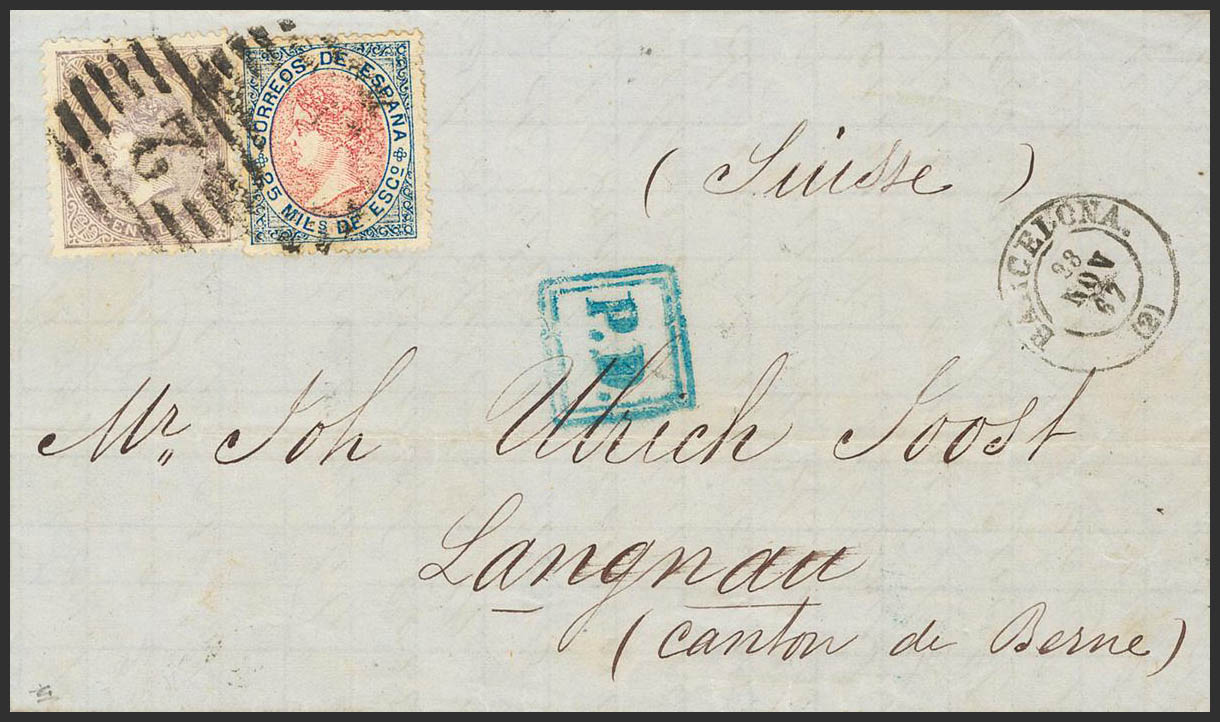 CORREOS DE ESPAÑA
25 MILS DE ESCO
2
(Suisse)
BARCELONA.
28
NOV
67
(2)
P.D.
Mr. Joh Ulrich Joost
Langnau
(canton de Berne)